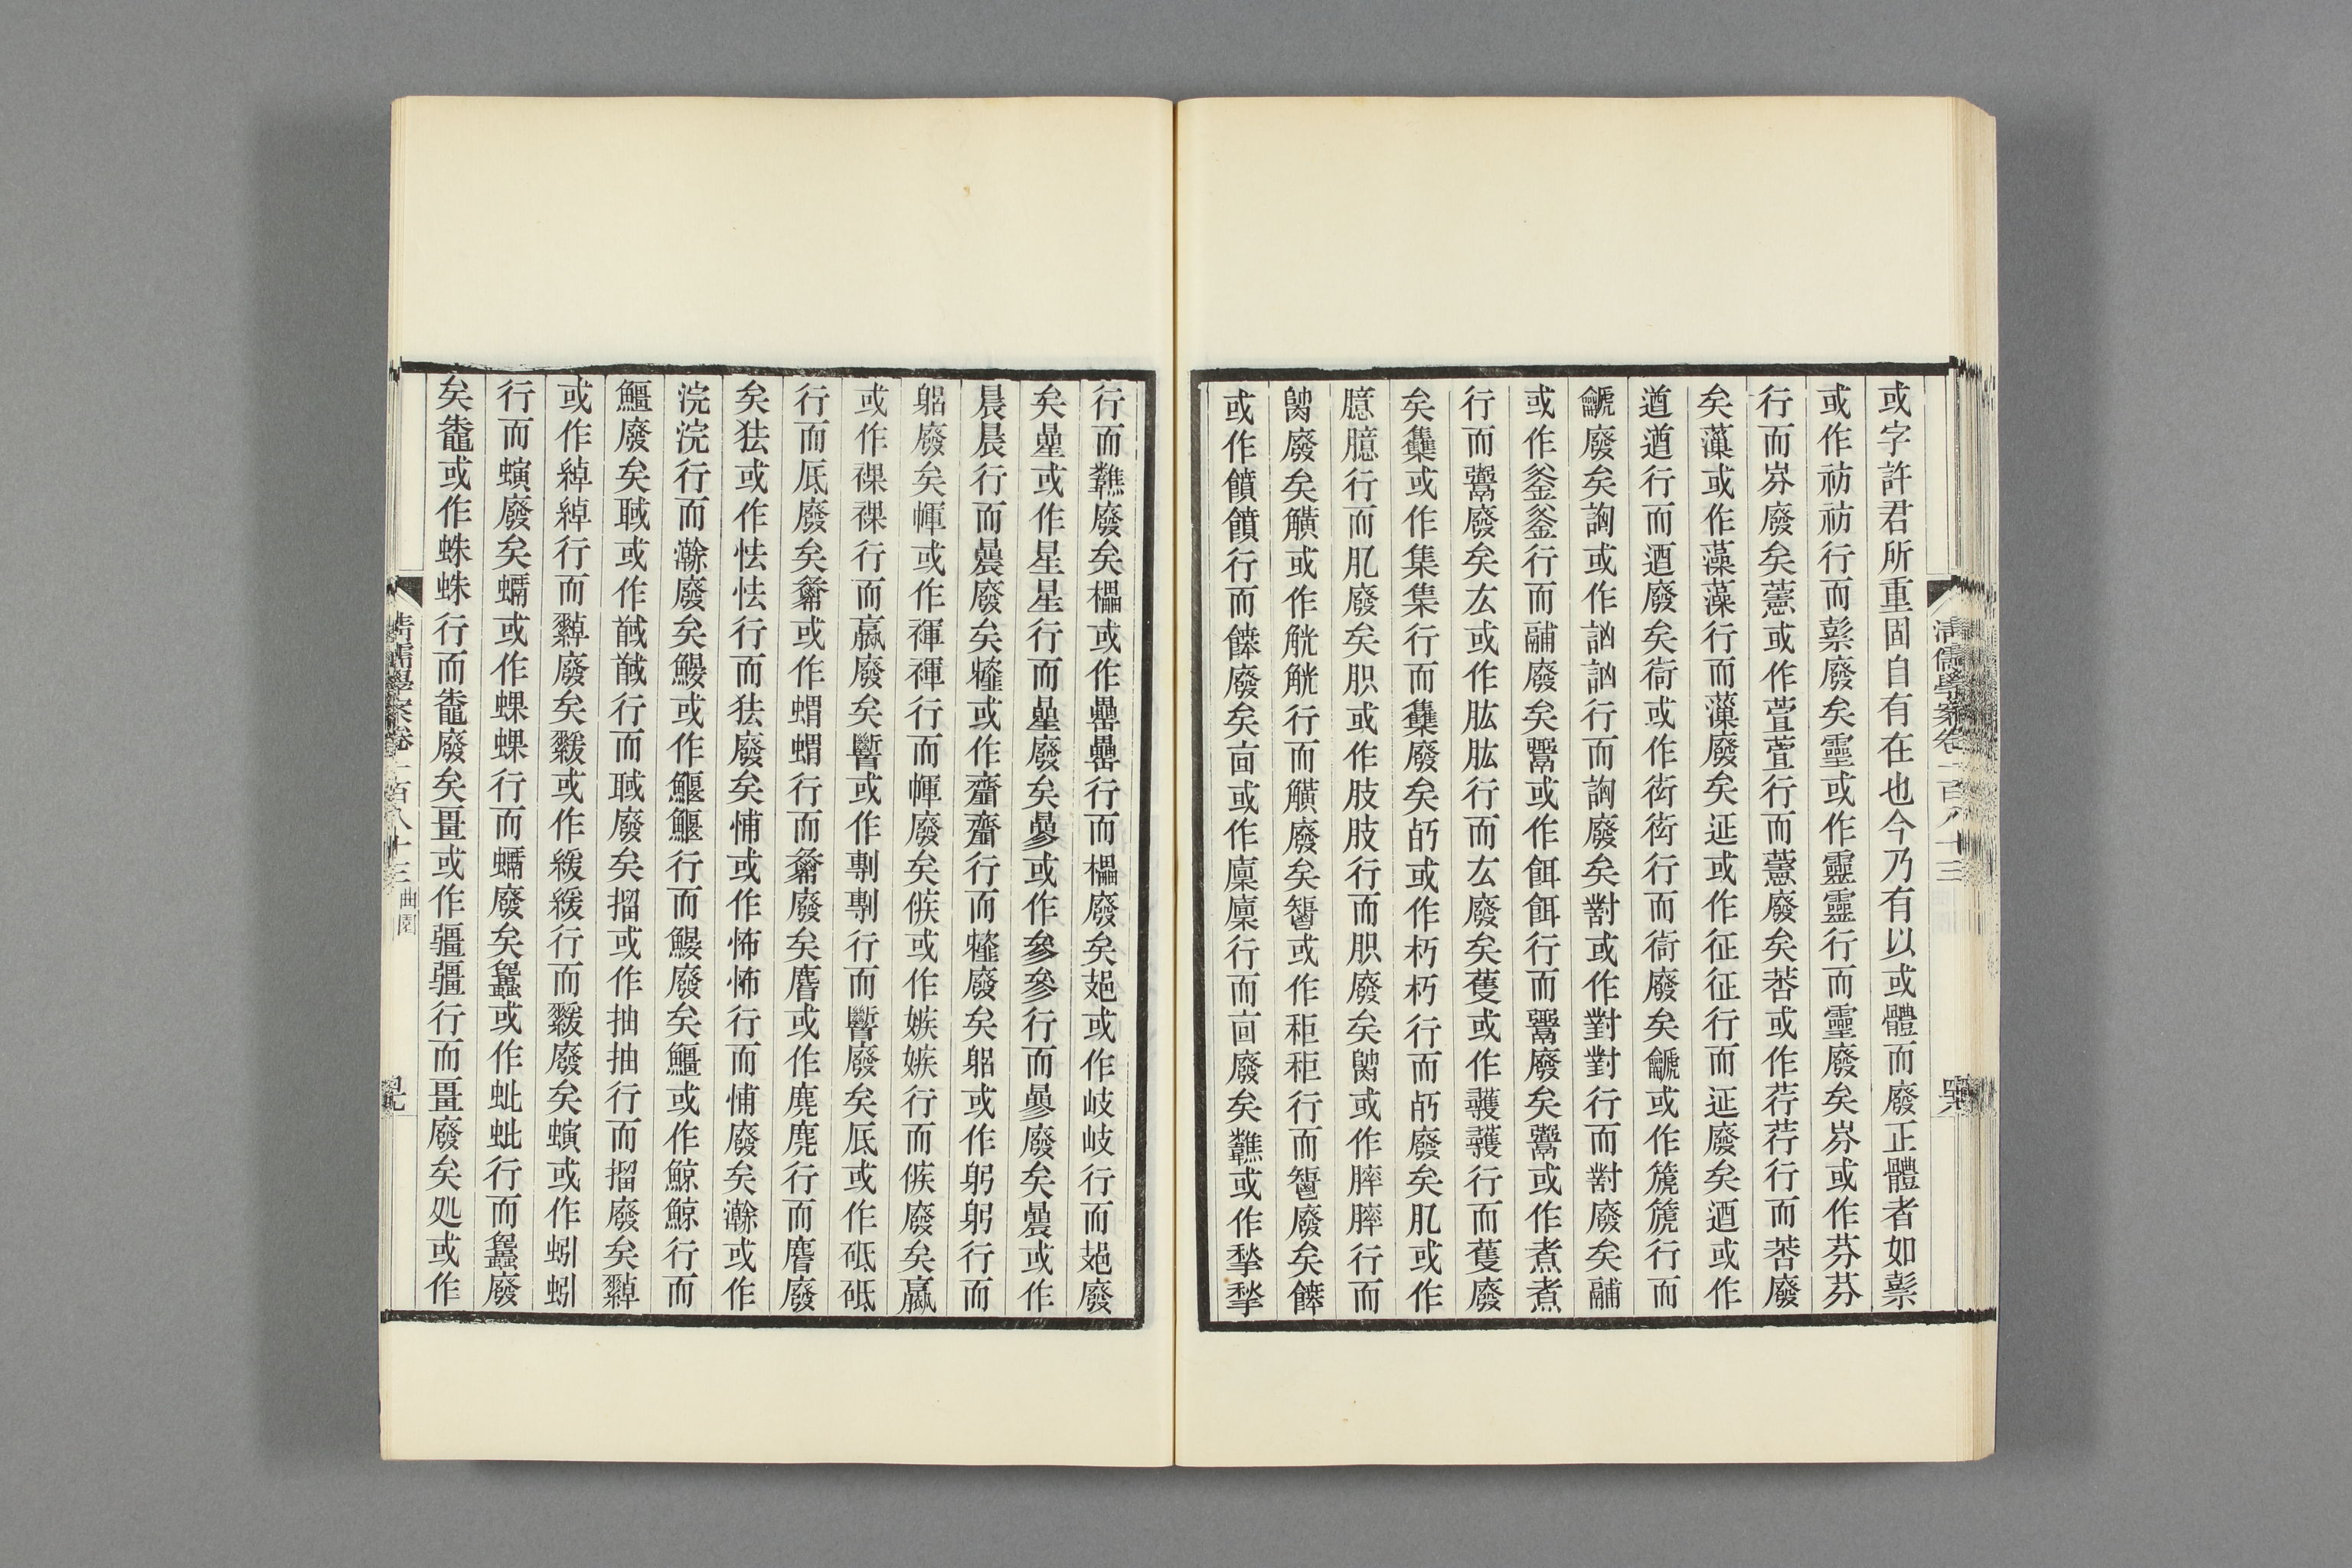 或字許君所重固自有在也今乃有以或體而廢正體者如䯱
或作祊祊行而䯱廢矣靈或作靈靈行而靈廢矣芬或作芬芬
行而岁廢矣藼或作萱萱行而藼廢矣莕或作荇荇行而莕廢
矣薻或作藻藻行而薻廢矣延或作征征行而延廢矣迺或作
遒遒行而迺廢矣衙或作衒衒行而衙廢矣龥或作篪篪行而
龥廢矣詾或作訩訩行而詾廢矣對或作對對行而對廢矣鬴
或作釜釜行而鬴廢矣鬻或作餌餌行而鬻廢矣鬻或作煮煮
行而鬻廢矣厷或作肱肱行而厷廢矣蒦或作彠彠行而蒦廢
矣雧或作集集行而雧廢矣𣦼或作朽朽行而𣦼廢矣肊或作
臆臆行而肊廢矣胑或作肢肢行而胑廢矣䐣或作膟膟行而
䐣廢矣觵或作觥觥行而觵廢矣𥻆或作秬秬行而𥻆廢矣餴
或作饙饙行而餴廢矣㐭或作廩廩行而㐭廢矣𪚰或作揫揫
行而𪚰廢矣櫑或作罍罍行而櫑廢矣𨙸或作岐岐行而𨙸廢
矣曐或作星星行而曐廢矣曑或作參參行而曑廢矣曟或作
晨晨行而曟廢矣𪗉或作齏齏行而𪗉廢矣躳或作躬躬行而
躳廢矣幝或作褌褌行而幝廢矣㑵或作嫉嫉行而㑵廢矣臝
或作裸裸行而臝廢矣𩠹或作剸剸行而𩠹廢矣厎或作砥砥
行而厎廢矣𧑙或作蝟蝟行而𧑙廢矣麠或作麂麂行而麠廢
矣㹤或作怯怯行而㹤廢矣悑或作怖怖行而悑廢矣澣或作
浣浣行而澣廢矣鰋或作鰋鰋行而鰋廢矣鱷或作鯨鯨行而
鱷廢矣聝或作馘馘行而聝廢矣㨨或作抽抽行而㨨廢矣繛
或作綽綽行而繛廢矣緩或作緩緩行而緩廢矣螾或作蚓蚓
行而螾廢矣蠣或作蜾蜾行而蠣廢矣蠶或作蚍蚍行而蠶廢
矣鼄或作蛛蛛行而鼄廢矣畺或作疆疆行而畺廢矣処或作
清儒學案卷二百八十三
清儒學案卷一百八十三 曲園